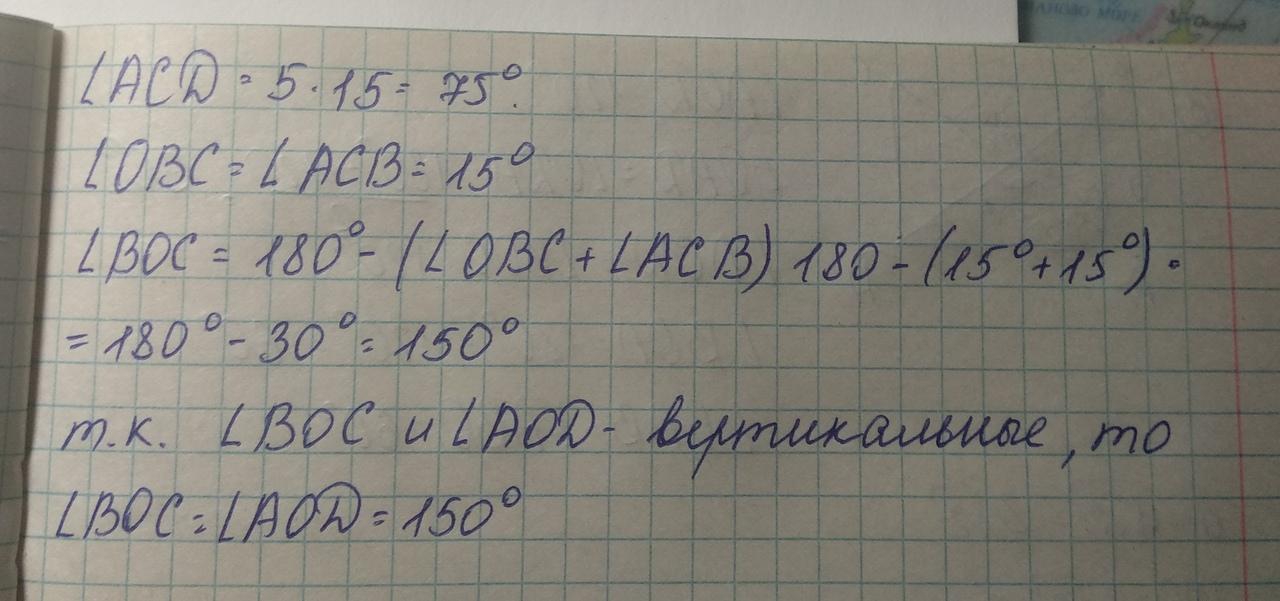 АНОВО МОРЕ
∠ACD = 5 · 15 = 75°.
∠OBC = ∠ACB = 15°
∠BOC = 180° - (∠OBC + ∠ACB) 180 - (15° + 15°) =
= 180° - 30° = 150°
т.к. ∠BOC и ∠AOD - вертикальные, то
∠BOC = ∠AOD = 150°